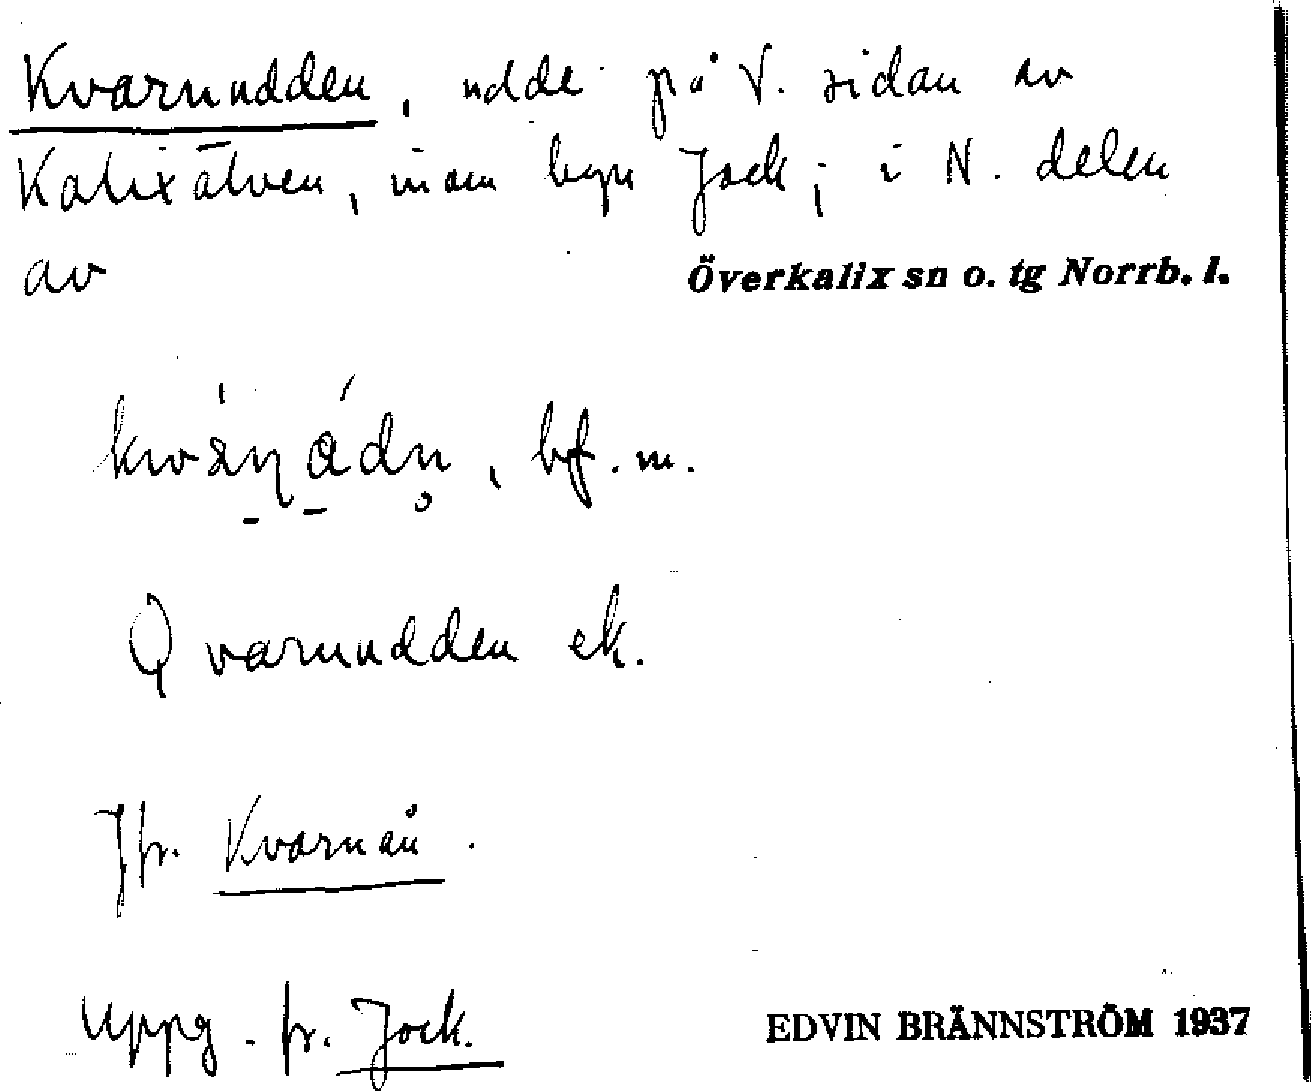 Kvarnudden, udde på V. sidan av
Kalixälven, inom byn Jock; i N. delen
av Överkalix sn o. tg Norrb. l.
bf. m.
Qvarnudden ek.
Jfr. Kvarnån.
Uppg. fr. Jock.
EDVIN BRÄNNSTRÖM 1937